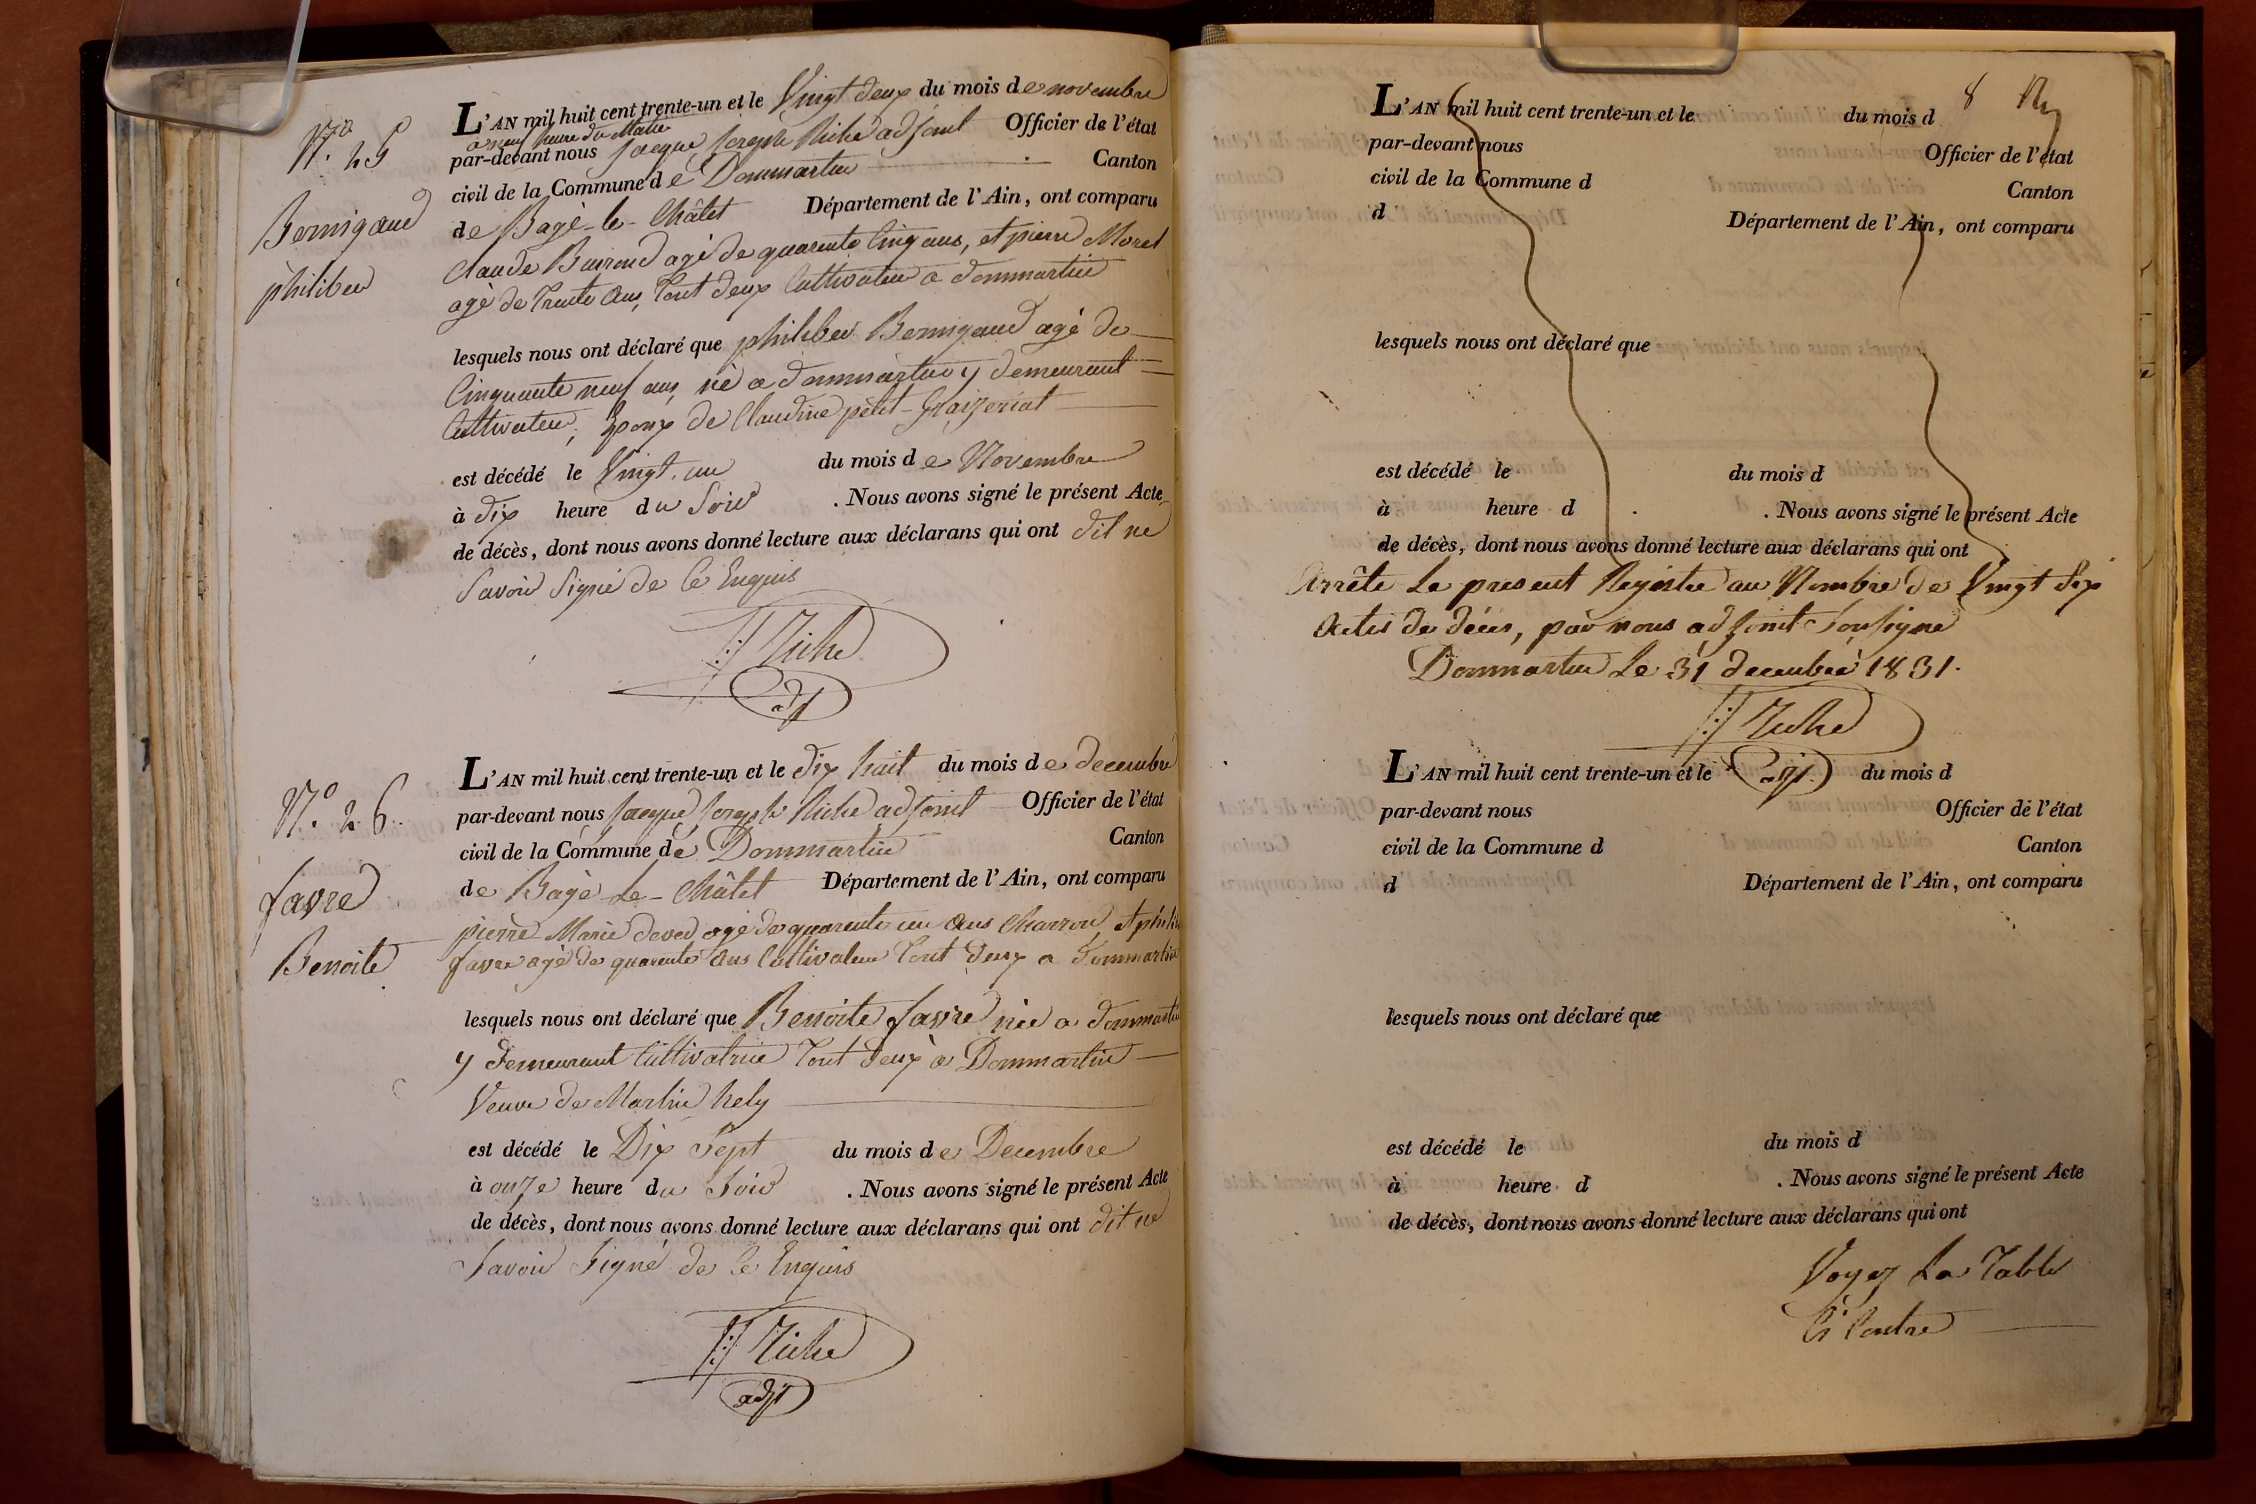 N.º 25
Bernigaud
philiber
L'AN mil huit cent trente-un et le Vingt deux du mois de novembre
a neuf heure du Matin
par-devant nous Jacque Joseph Riche adjoint Officier de l'état
civil de la Commune de Dommartin Canton
de Bagé-le-Châtel Département de l'Ain, ont comparu
Claude agé de quarente Cinq ans, et pierre Morel
agé de Trente Ans, Tout deux Cultivateur a dommartin
lesquels nous ont déclaré que philiber Bernigaud agé de
Cinquante neuf ans, né a dommartin y demeurant
Cultivateur, Epoux de Claudine petit-
est décédé le Vingt un du mois de Novembre
à dix heure du Soir . Nous avons signé le présent Acte
de décès, dont nous avons donné lecture aux déclarans qui ont dit ne
Savoir Signé de Ce Enquis
JJ Riche
adj
N.º 26.
favre
Benoite
L'AN mil huit cent trente-un et le dix huit du mois de decembre
par-devant nous Jacque Joseph Riche adjoint Officier de l'état
civil de la Commune de Dommartin Canton
de Bagé-Le-Châtel Département de l'Ain, ont comparu
pierre Marie agé de quarente un Ans Charron, et
favre agé de quarente Ans Cultivateur Tout deux a Dommartin
lesquels nous ont déclaré que Benoite favre née a dommartin
y demeurant Cultivatrice Tout deux a Dommartin
Veuve de Martin hely
est décédé le Dix Sept du mois de Decembre
à onze heure du Soir . Nous avons signé le présent Acte
de décès, dont nous avons donné lecture aux déclarans qui ont dit ne
Savoir Signé de Ce Enquis
JJ Riche
adjt
8
L'AN mil huit cent trente-un et le du mois d
par-devant nous Officier de l'état
civil de la Commune d Canton
d Département de l'Ain, ont comparu
lesquels nous ont déclaré que
est décédé le du mois d
à heure d . Nous avons signé le présent Acte
de décès, dont nous avons donné lecture aux déclarans qui ont
Arrête Le present Registre au Nombre de Vingt Six
Actes de décès, par nous adjoint Sousigné
Dommartin Le 31 decembre 1831.
JJ Riche
adj.
L'AN mil huit cent trente-un et le du mois d
par-devant nous Officier de l'état
civil de la Commune d Canton
d Département de l'Ain, ont comparu
lesquels nous ont déclaré que
est décédé le du mois d
à heure d . Nous avons signé le présent Acte
de décès, dont nous avons donné lecture aux déclarans qui ont
Voyez La Table
Ci Contre